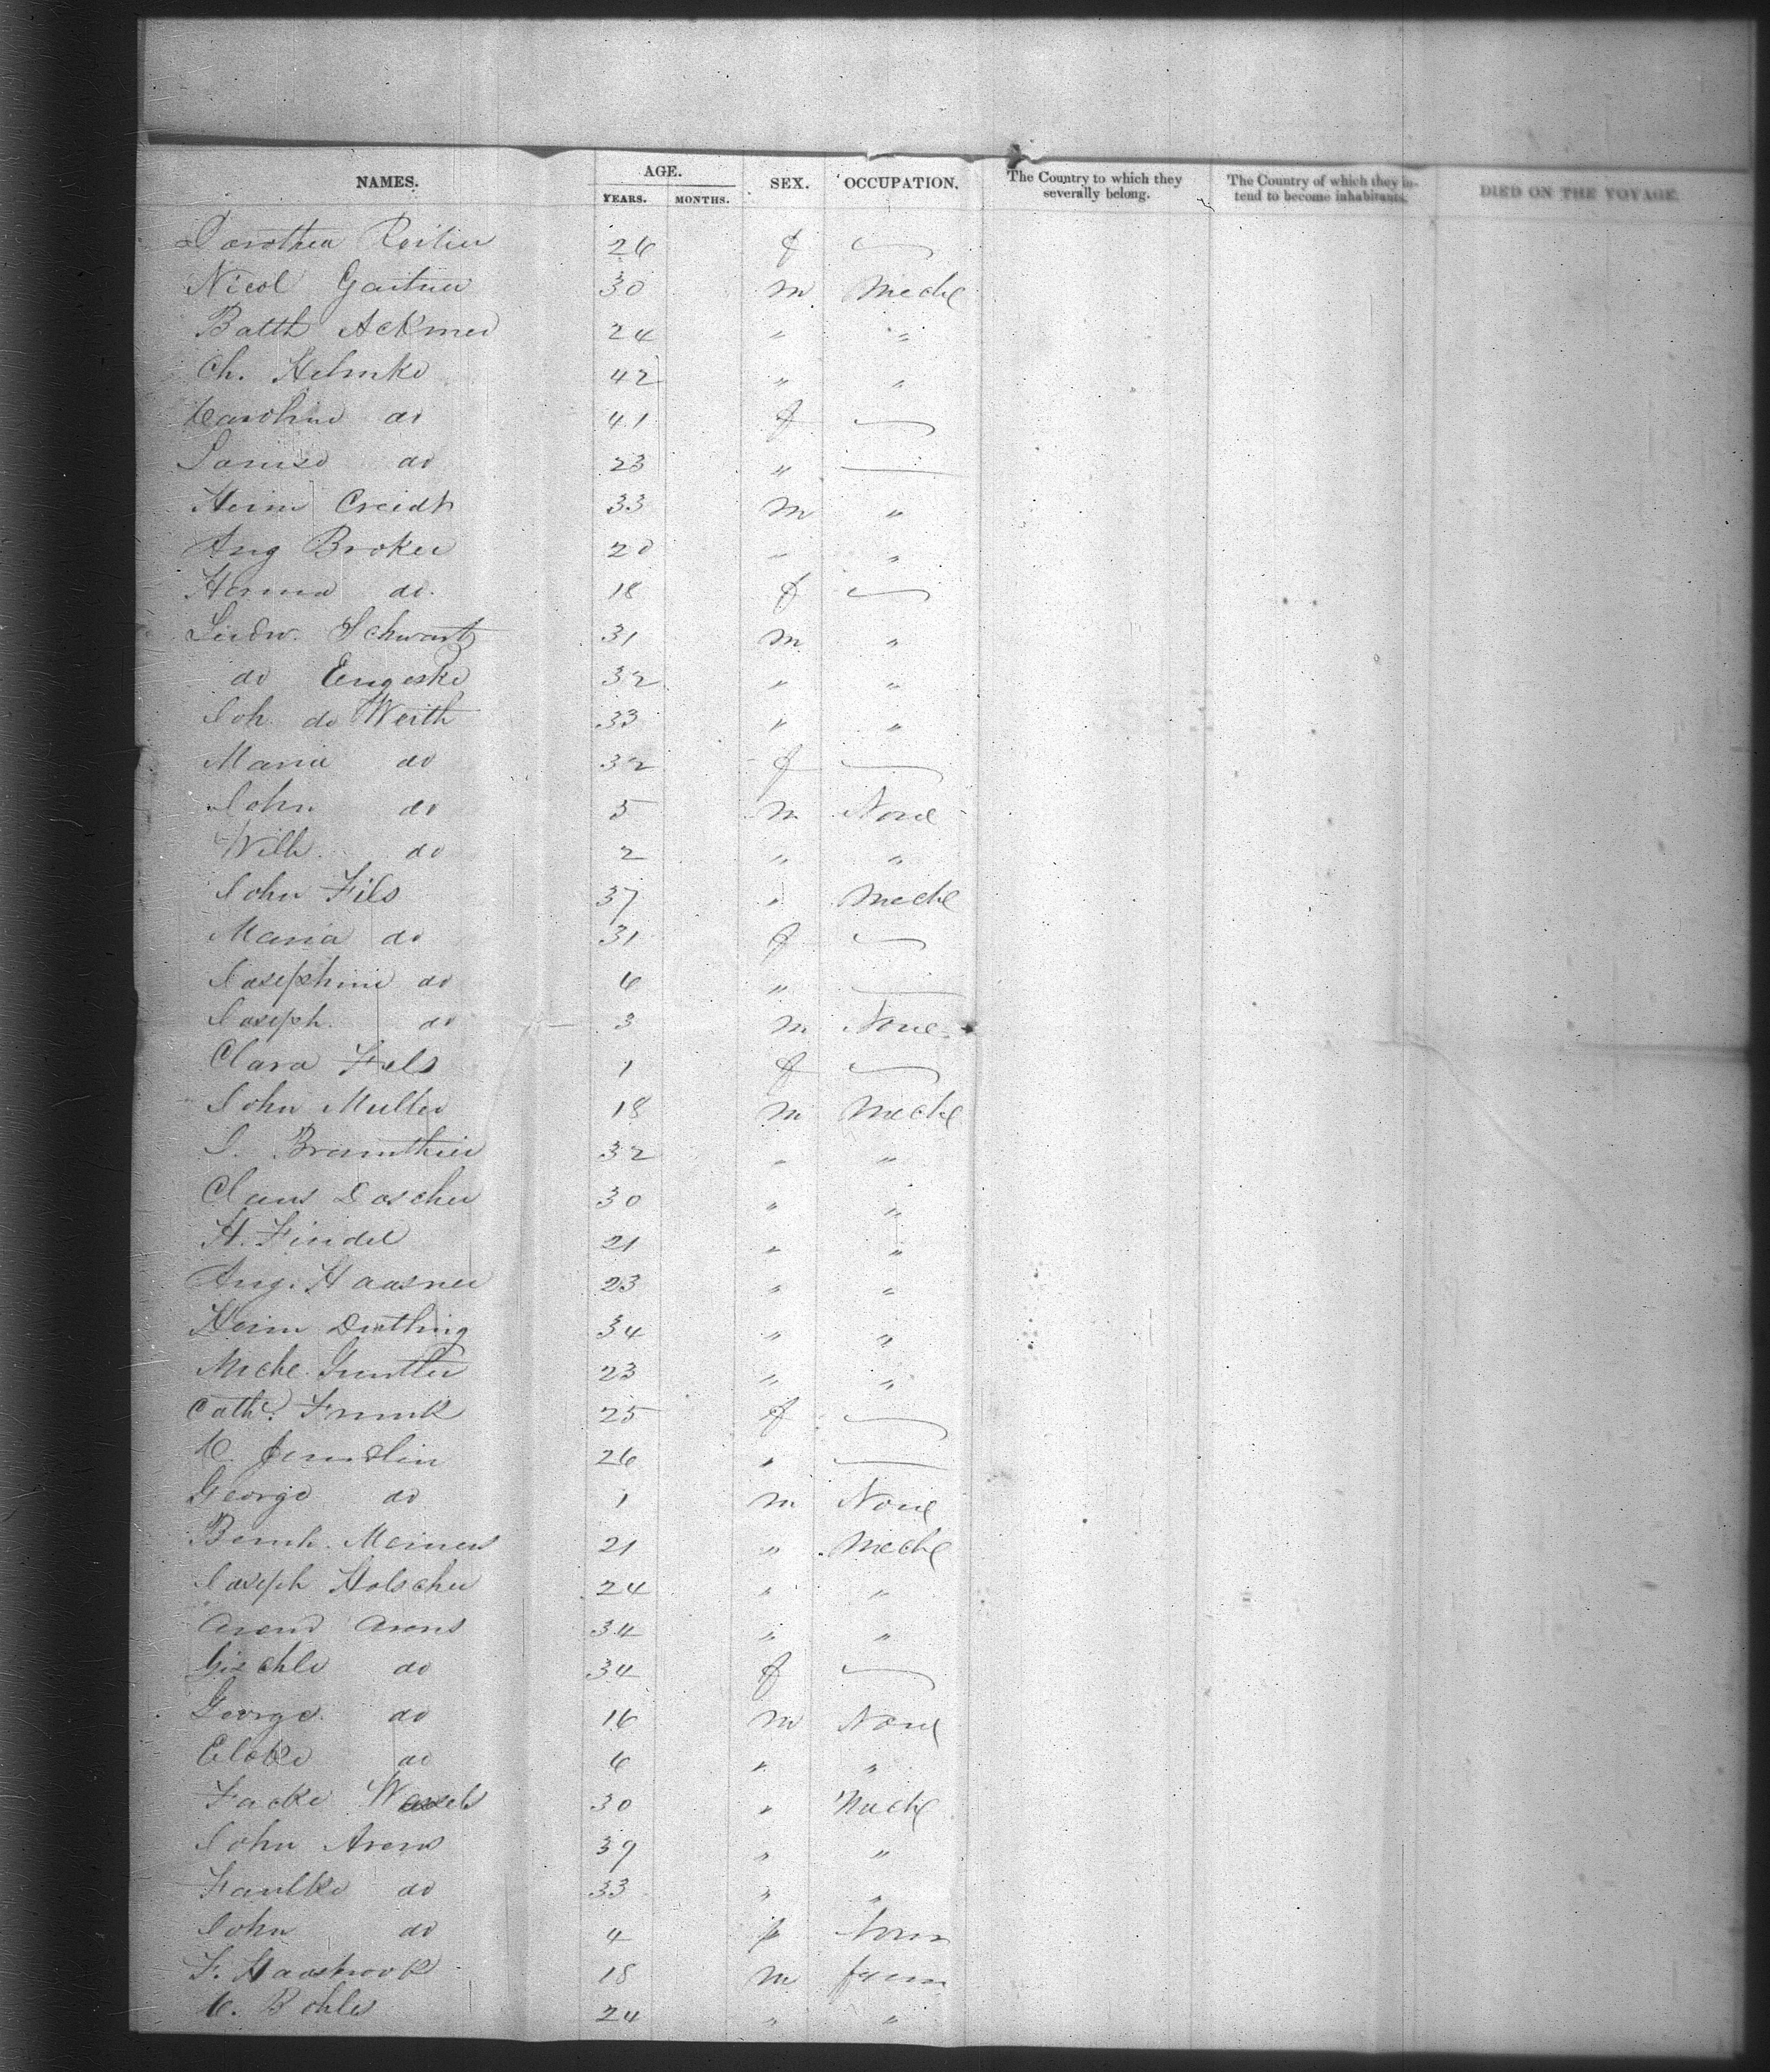 NAMES. AGE. SEX. OCCUPATION. The Country to which they severally belong. The Country of which they intend to become inhabitants. DIED ON THE VOYAGE.
YEARS. MONTHS.
Dorothea 26 f
Nicol Gartner 30 m Mechc
Batth Ackmer 24 " "
Ch. Helmke 42 " "
Caroline do 41 f
Louise do 23 "
Heinr Creidt 33 m "
Aug Broker 20 " "
Hanna do. 18 f
Ludw. Schwartz 31 m "
do Engeske 32 " "
Joh. do Werth 33 " "
Maria do 32 f
John do 5 m None
Wilh. do 2 " "
John Fils 37 " Mechc
Maria do 31 f
Josephine do 6 "
Joseph. do 3 m None
Clara Fels 1 f
John Muller 18 m Mechc
J. 32 " "
Claus Doscher 30 " "
H. Findel 21 " "
Aug. Haasner 23 " "
Heinr 34 " "
Miche. 23 " "
Cath. Frunk 25 f
C. 26 "
George do 1 m None
Bernh. Meiners 21 " Mechc
Joseph Holscher 24 " "
Arend Arens 34 " "
do 34 f
George. do 16 m None
do 6 " "
Focke Wessels 30 " Mechc
John Arens 39 " "
Faulke do 33 " "
John do 4 f None
F. 18 m farm
C. Bohles 24 " "